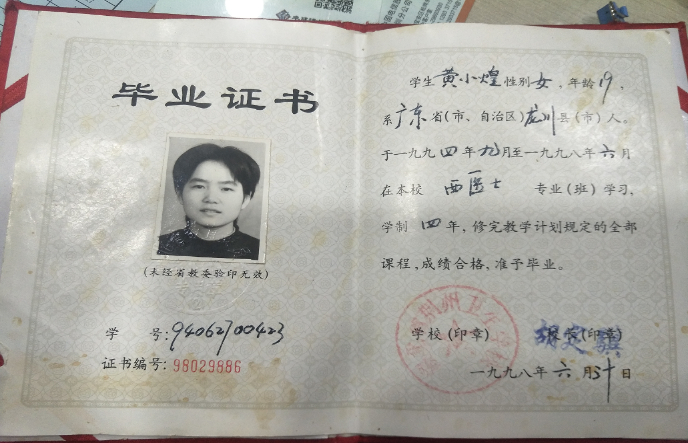 毕业证书
(未经省教委验印无效)
学 号:94062700423
证书编号:98029886
学生黄小煌性别女,年龄19,
系广东省(市、自治区)龙川县(市)人。
于一九九四年九月至一九九八年六月
在本校 西医士 专业(班)学习,
学制 四年,修完教学计划规定的全部
课程,成绩合格、准予毕业。
学校(印章) 校长(印章)
一九九八年六月卅日